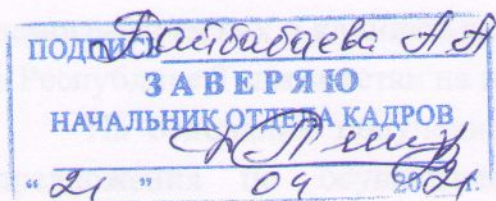 ПОДПИСЬ Байбабаева А.А
ЗАВЕРЯЮ
НАЧАЛЬНИК ОТДЕЛА КАДРОВ
“ 21 ” 04 2021 г.